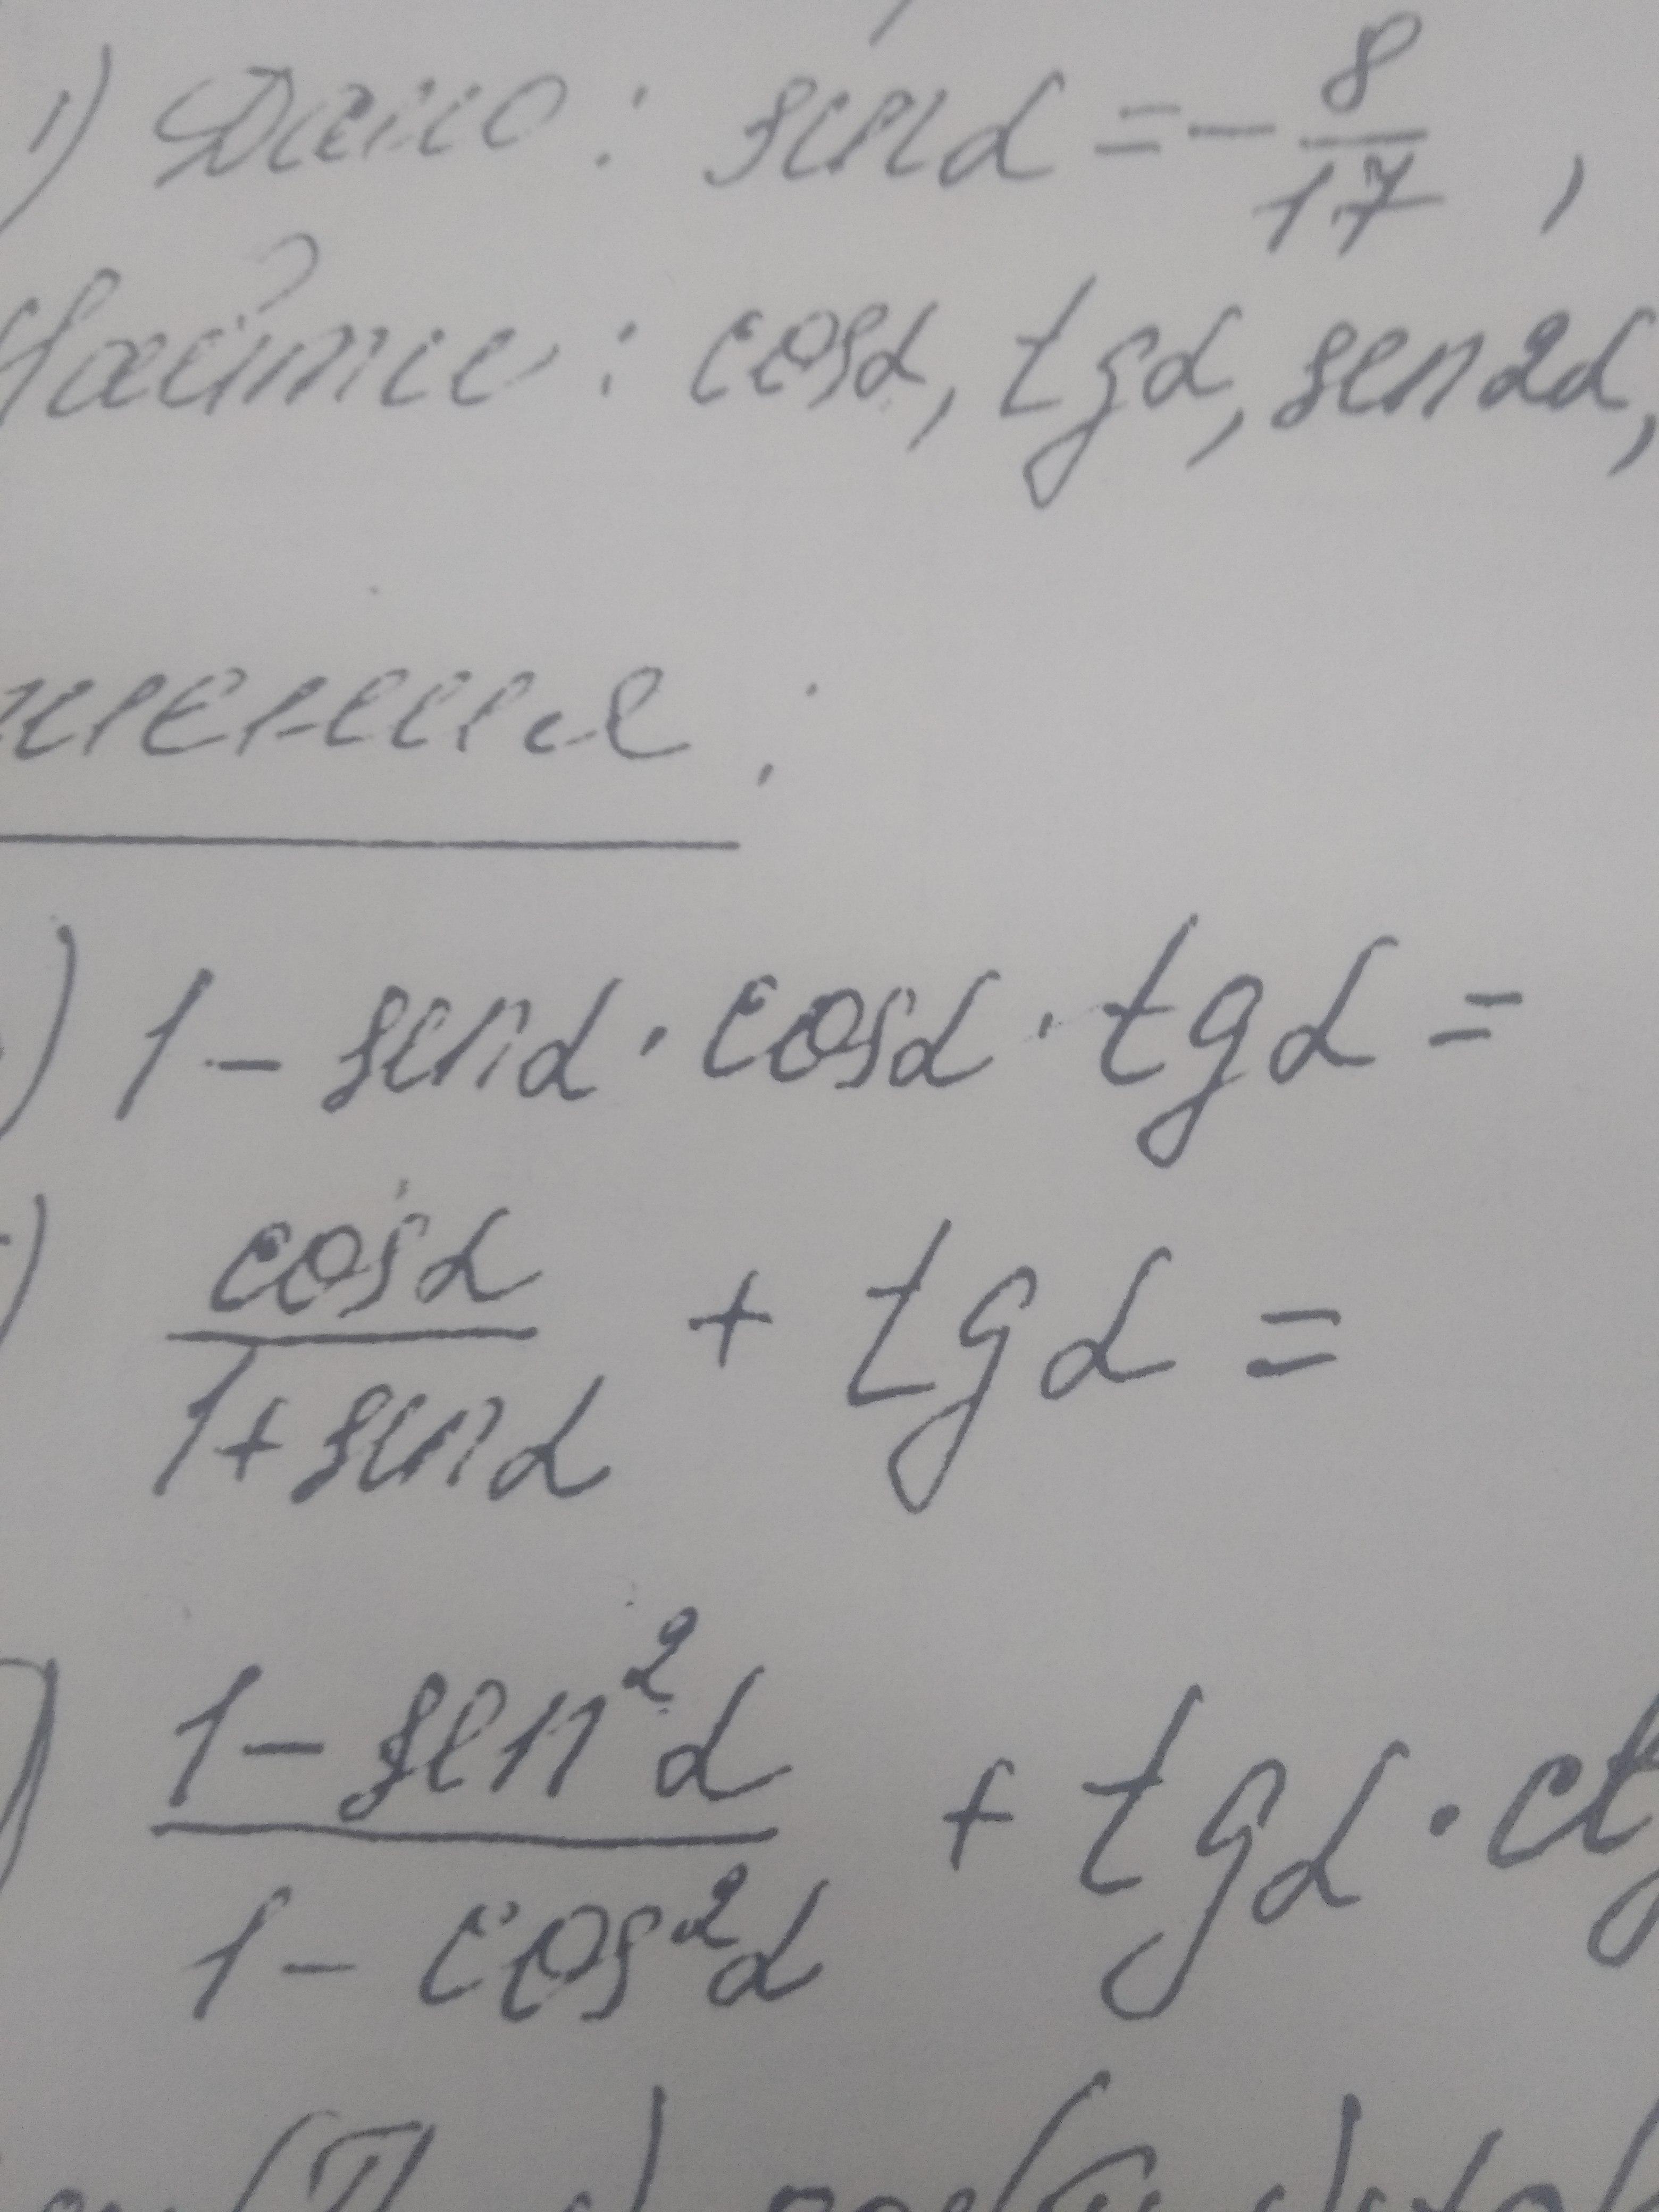 1) Дано: sinα = - 8/17,
Найти: cosα, tgα, sin2α,
шение:
) 1 - sinα · cosα · tgα =
) cosα/(1+sinα) + tgα =
) (1 - sin²α)/(1 - cos²α) + tgα · ctg